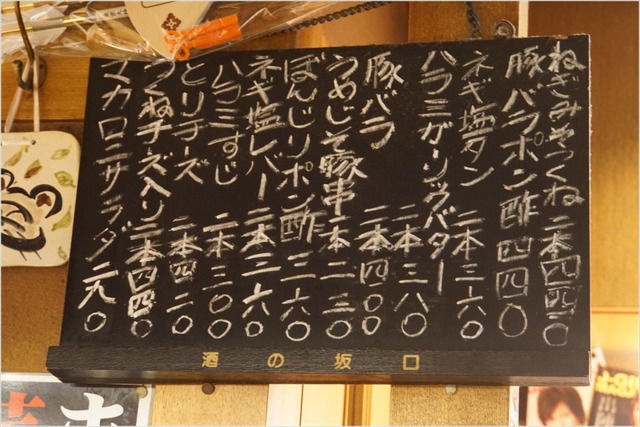 ねぎみそつくね 二本四四〇
豚バラポン酢 四四〇
ネギ塩タン 二本三六〇
ハラミガーリックバター 二本三八〇
豚バラ 二本四〇〇
うめじそ豚串 一本二二〇
ぼんじりポン酢 二六〇
ネギ塩レバー 二本二六〇
ハラミすじ 二本三〇〇
とりチーズ 二本四二〇
つくねチーズ入り 二本四四〇
マカロニサラダ 二九〇
酒の坂口